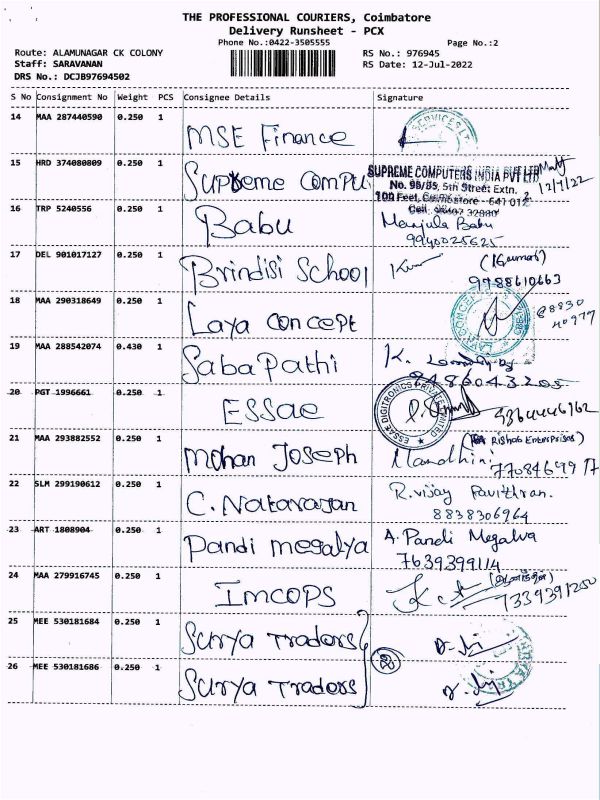 THE PROFESSIONAL COURIERS, Coimbatore
Delivery Runsheet - PCX
Phone No.:0422-3505555 Page No.:2
Route: ALAMUNAGAR CK COLONY RS No.: 976945
Staff: SARAVANAN RS Date: 12-Jul-2022
DRS No.: DCJB97694502
S No Consignment No Weight PCS Consignee Details Signature
14 MAA 287440590 0.250 1 MSE Finance
15 HRD 374080809 0.250 1 Supreme Compu
SUPREME COMPUTERS INDIA PVT LTD
No. 5th Street Extn. 12/7/22
100 Feet, Coimbatore - 641 012
16 TRP 5240556 0.250 1 Babu Manjula Babu
9940025625
17 DEL 901017127 0.250 1 Brindisi School (Kumar)
9788610663
18 MAA 290318649 0.250 1 Laya Concept 98830
40977
19 MAA 288542074 0.430 1 Sabapathi K.
9486043205
20 PGT 1996661 0.250 1 ESSae ESSAE DIGITRONICS PRIVATE LIMITED
21 MAA 293882552 0.250 1 Mohan Joseph (Rishab Enterprises)
Nandhini
22 SLM 299190612 0.250 1 C. Natarajan R. vijay Pavithran.
8838306964
23 ART 1808904 0.250 1 Pandi megalya A. Pandi Megalva
7639399114
24 MAA 279916745 0.250 1 Imcops
7339391250
25 MEE 530181684 0.250 1 Surya Traders
2
26 MEE 530181686 0.250 1 Surya Traders